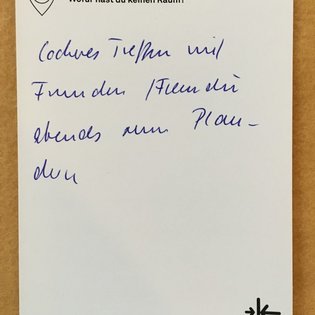 Wofür hast du keinen Raum?
lockeres Treffen mit
Freunden / Freundin
abends zum Plau-
dern